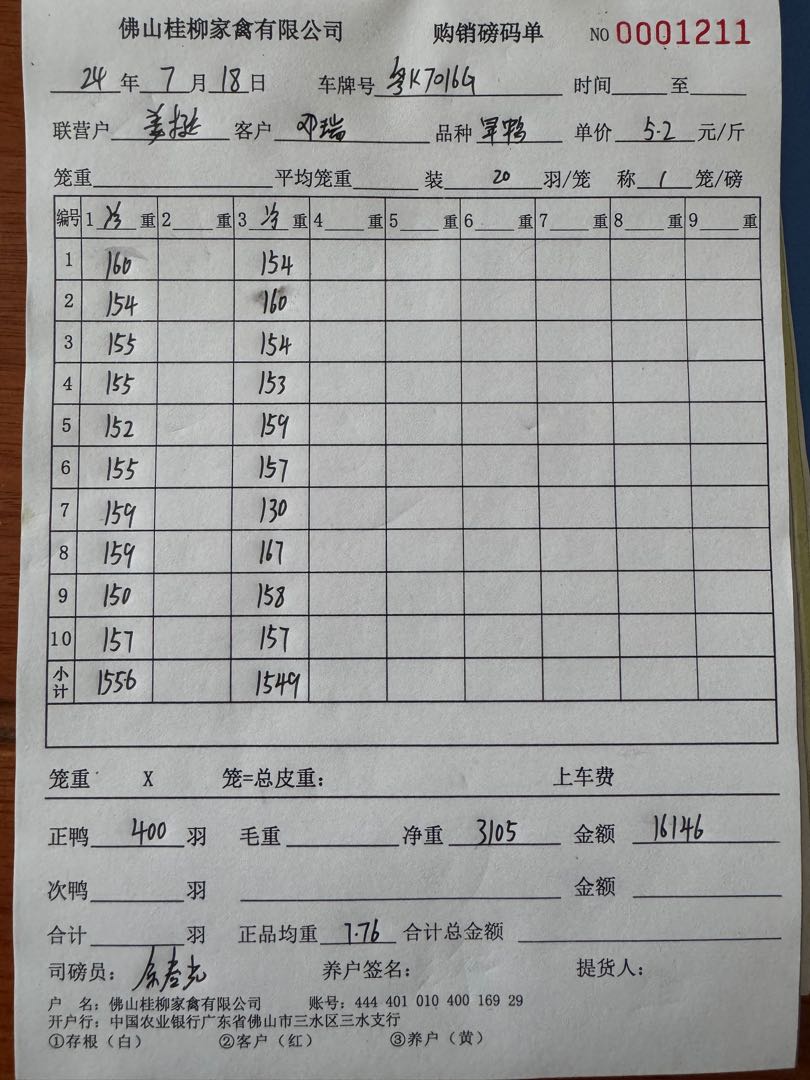 佛山桂柳家禽有限公司 购销磅码单 NO 0001211
24 年 7 月 18 日 车牌号 粤K7016G 时间 至
联营户 客户 邓瑞 品种 旱鸭 单价 5.2 元/斤
笼重 平均笼重 装 20 羽/笼 称 1 笼/磅
编号 1 净 重 2 重 3 净 重 4 重 5 重 6 重 7 重 8 重 9 重
1 160 154
2 154 160
3 155 154
4 155 153
5 152 159
6 155 157
7 159 130
8 159 167
9 150 158
10 157 157
小计 1556 1549
笼重 X 笼=总皮重: 上车费
正鸭 400 羽 毛重 净重 3105 金额 16146
次鸭 羽 金额
合计 羽 正品均重 7.76 合计总金额
司磅员: 养户签名: 提货人:
户 名: 佛山桂柳家禽有限公司 账号: 444 401 010 400 169 29
开户行: 中国农业银行广东省佛山市三水区三水支行
①存根(白) ②客户(红) ③养户(黄)